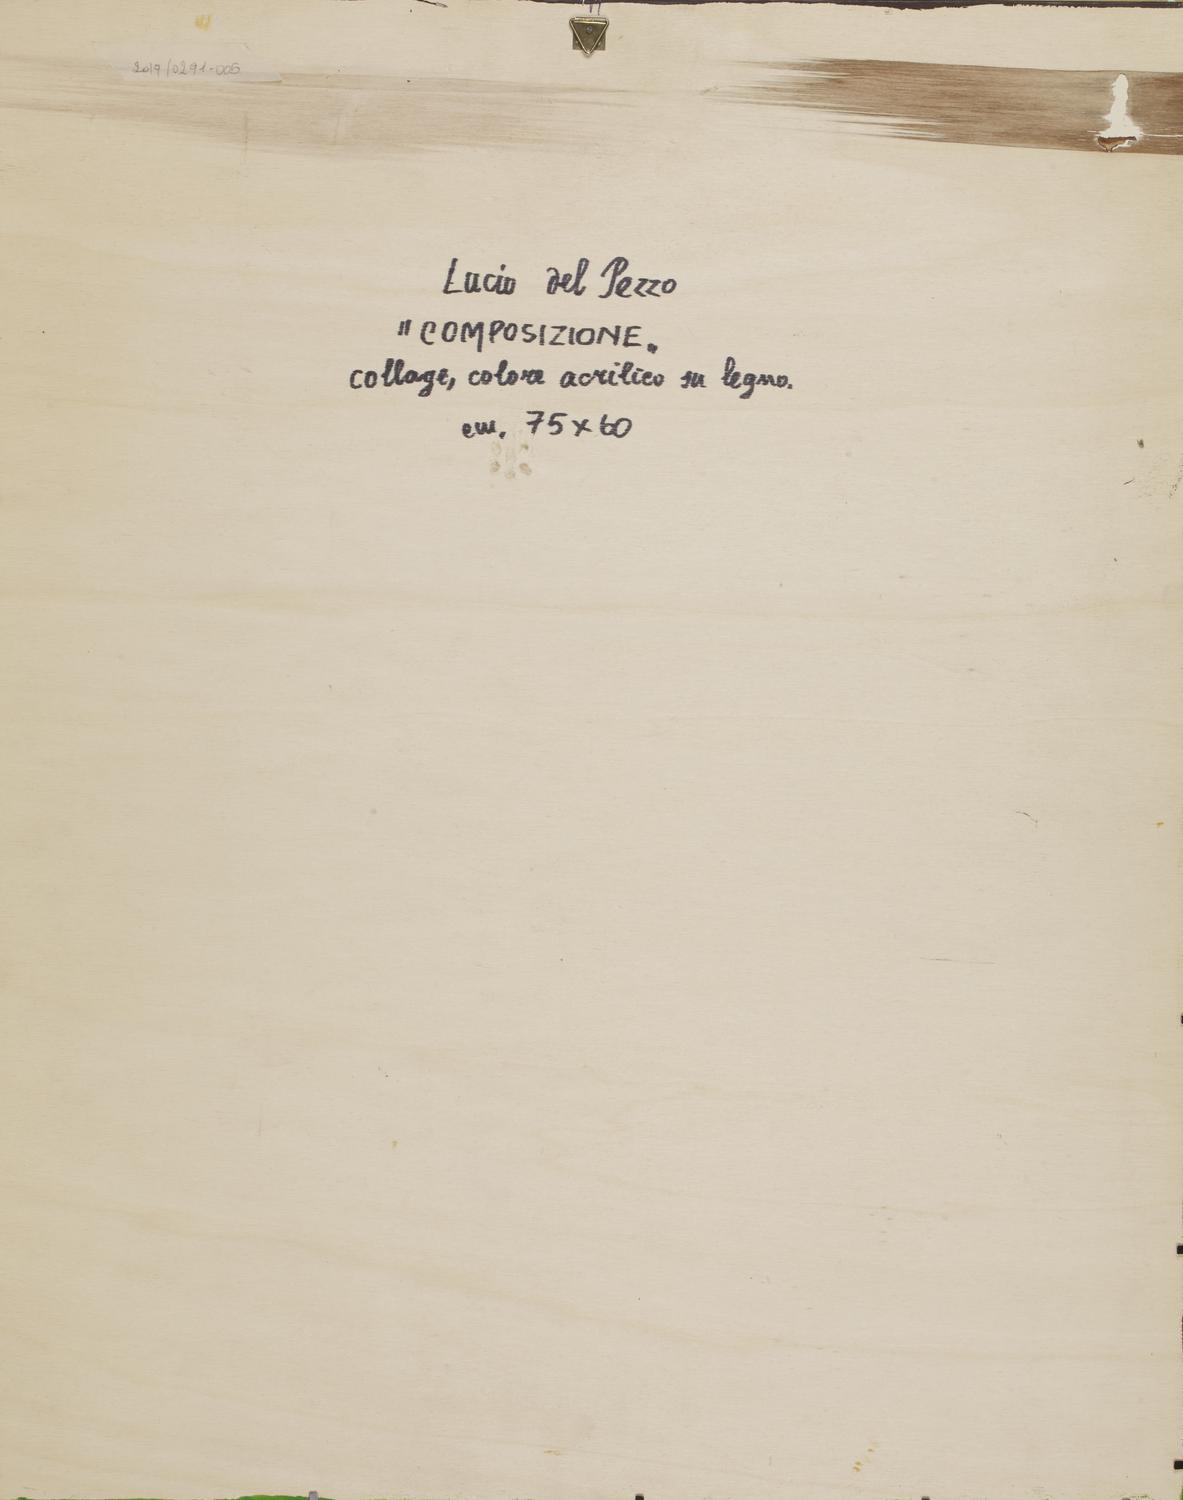 2019/0291-005
Lucio del Pezzo
"COMPOSIZIONE„
collage, colore acrilico su legno.
cm. 75x60